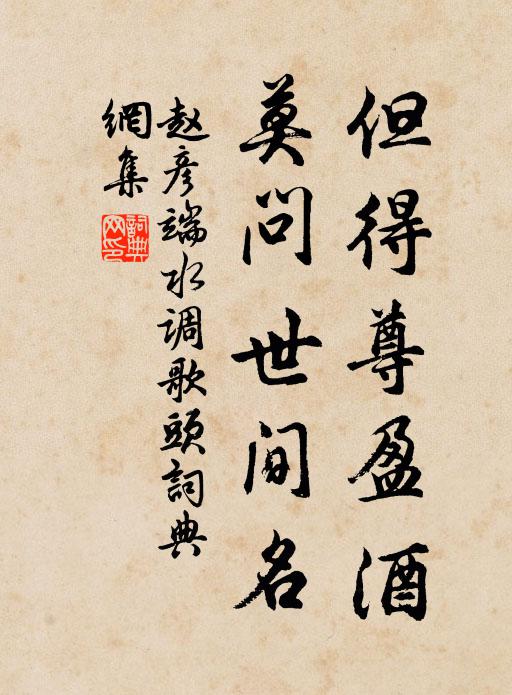 但得尊盈酒
莫问世间名
赵彦端水调歌头詞典
網集
詞典網印